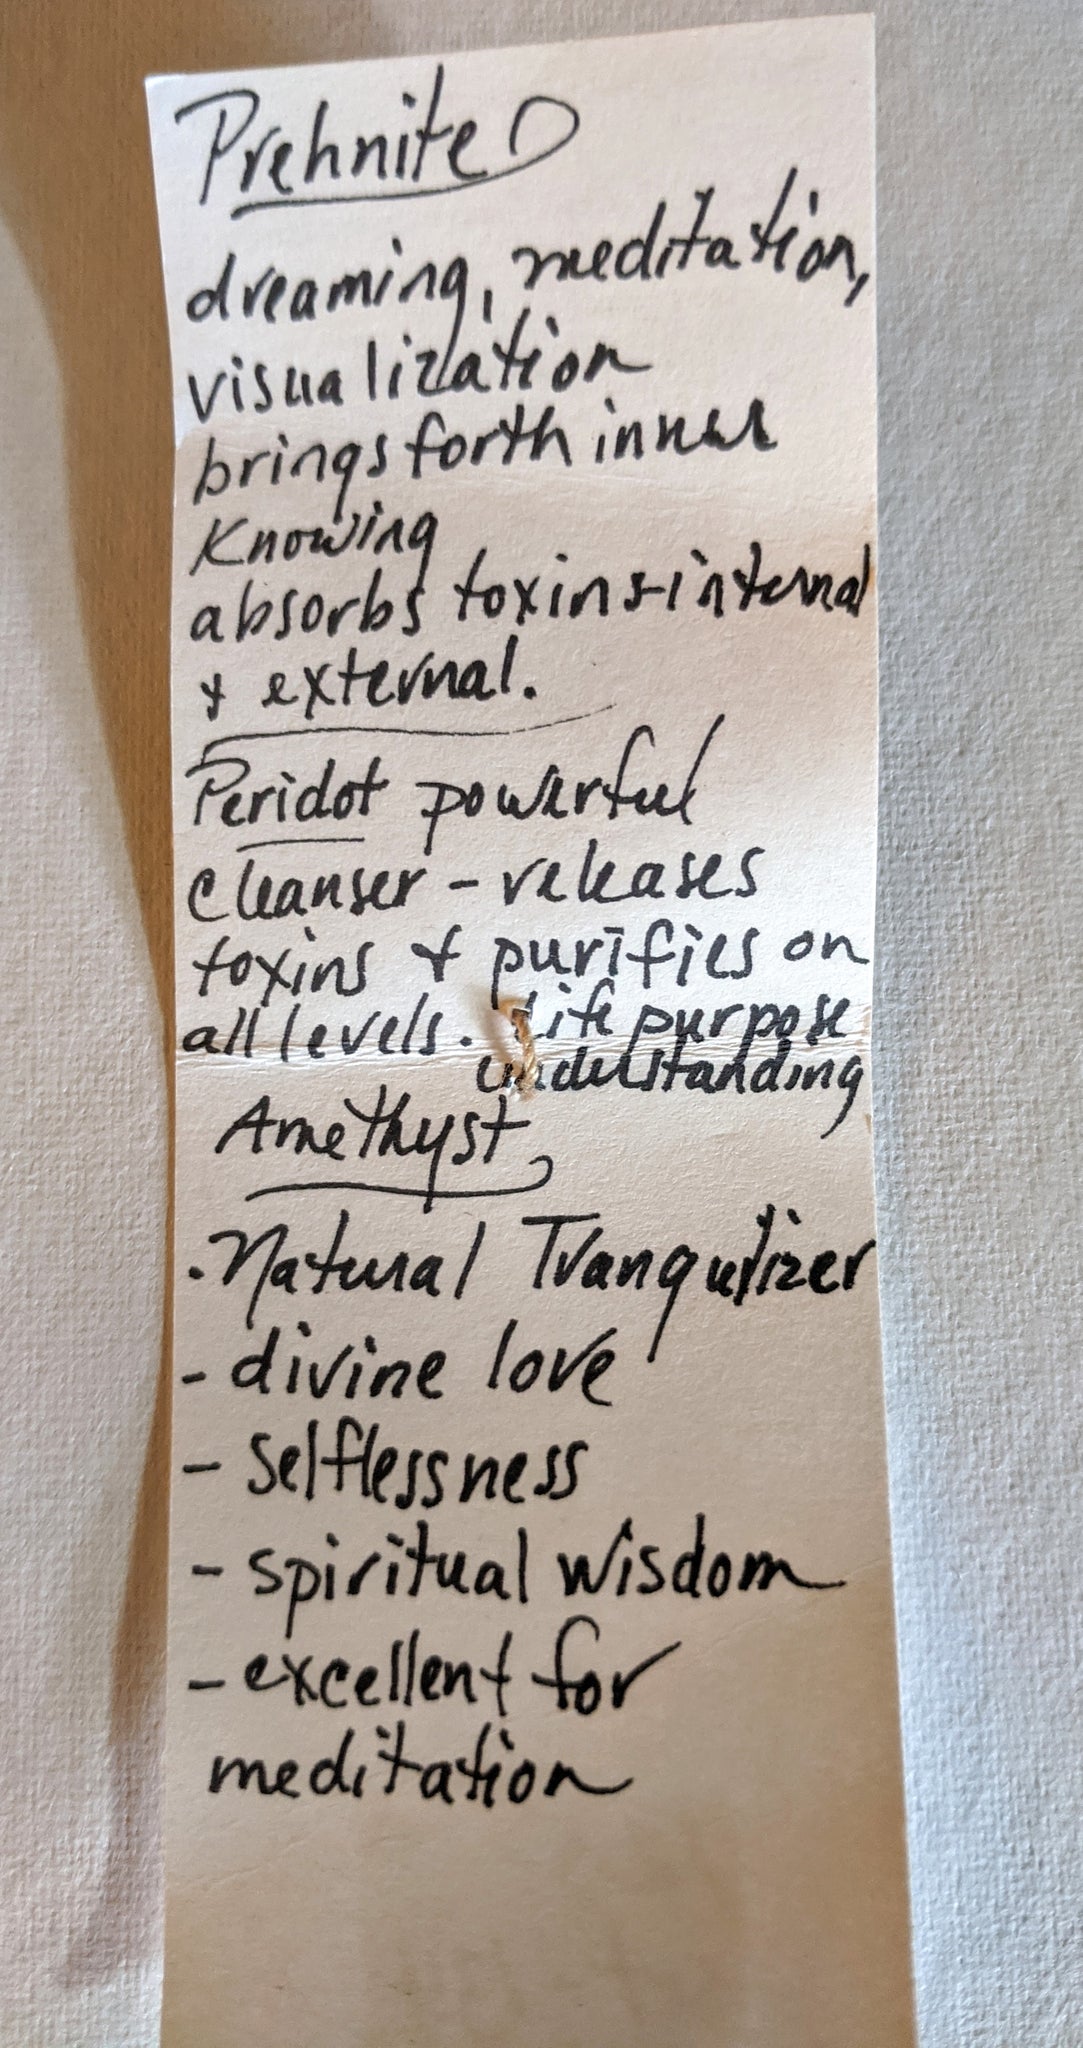 Prehnite
dreaming, meditation,
visualization
brings forth inner
Knowing
absorbs toxins-internal
& external.
Peridot powerful
cleanser - releases
toxins & purifies on
all levels. Life purpose
understanding
Amethyst
. Natural Tranquilizer
- divine love
- selflessness
- spiritual wisdom
- excellent for
meditation